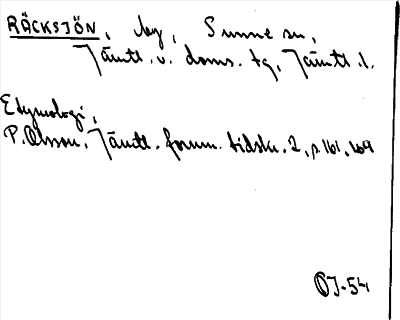 RÄCKSJÖN, by, Sunne sn,
Jämtl. v. doms. tg, Jämtl. l.
Etymologi,
P. Olsson, Jämtl. fornm. tidskr. 2, s. 161, 169
OJ-54